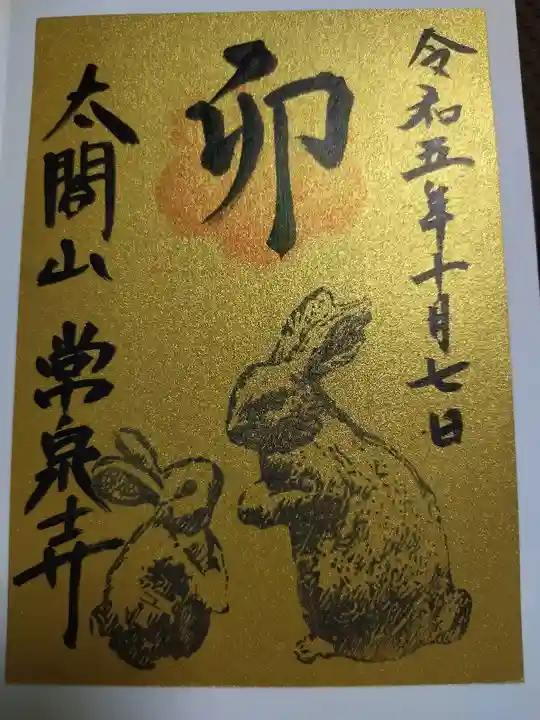 令和五年十月七日
卯
太間山 常泉寺